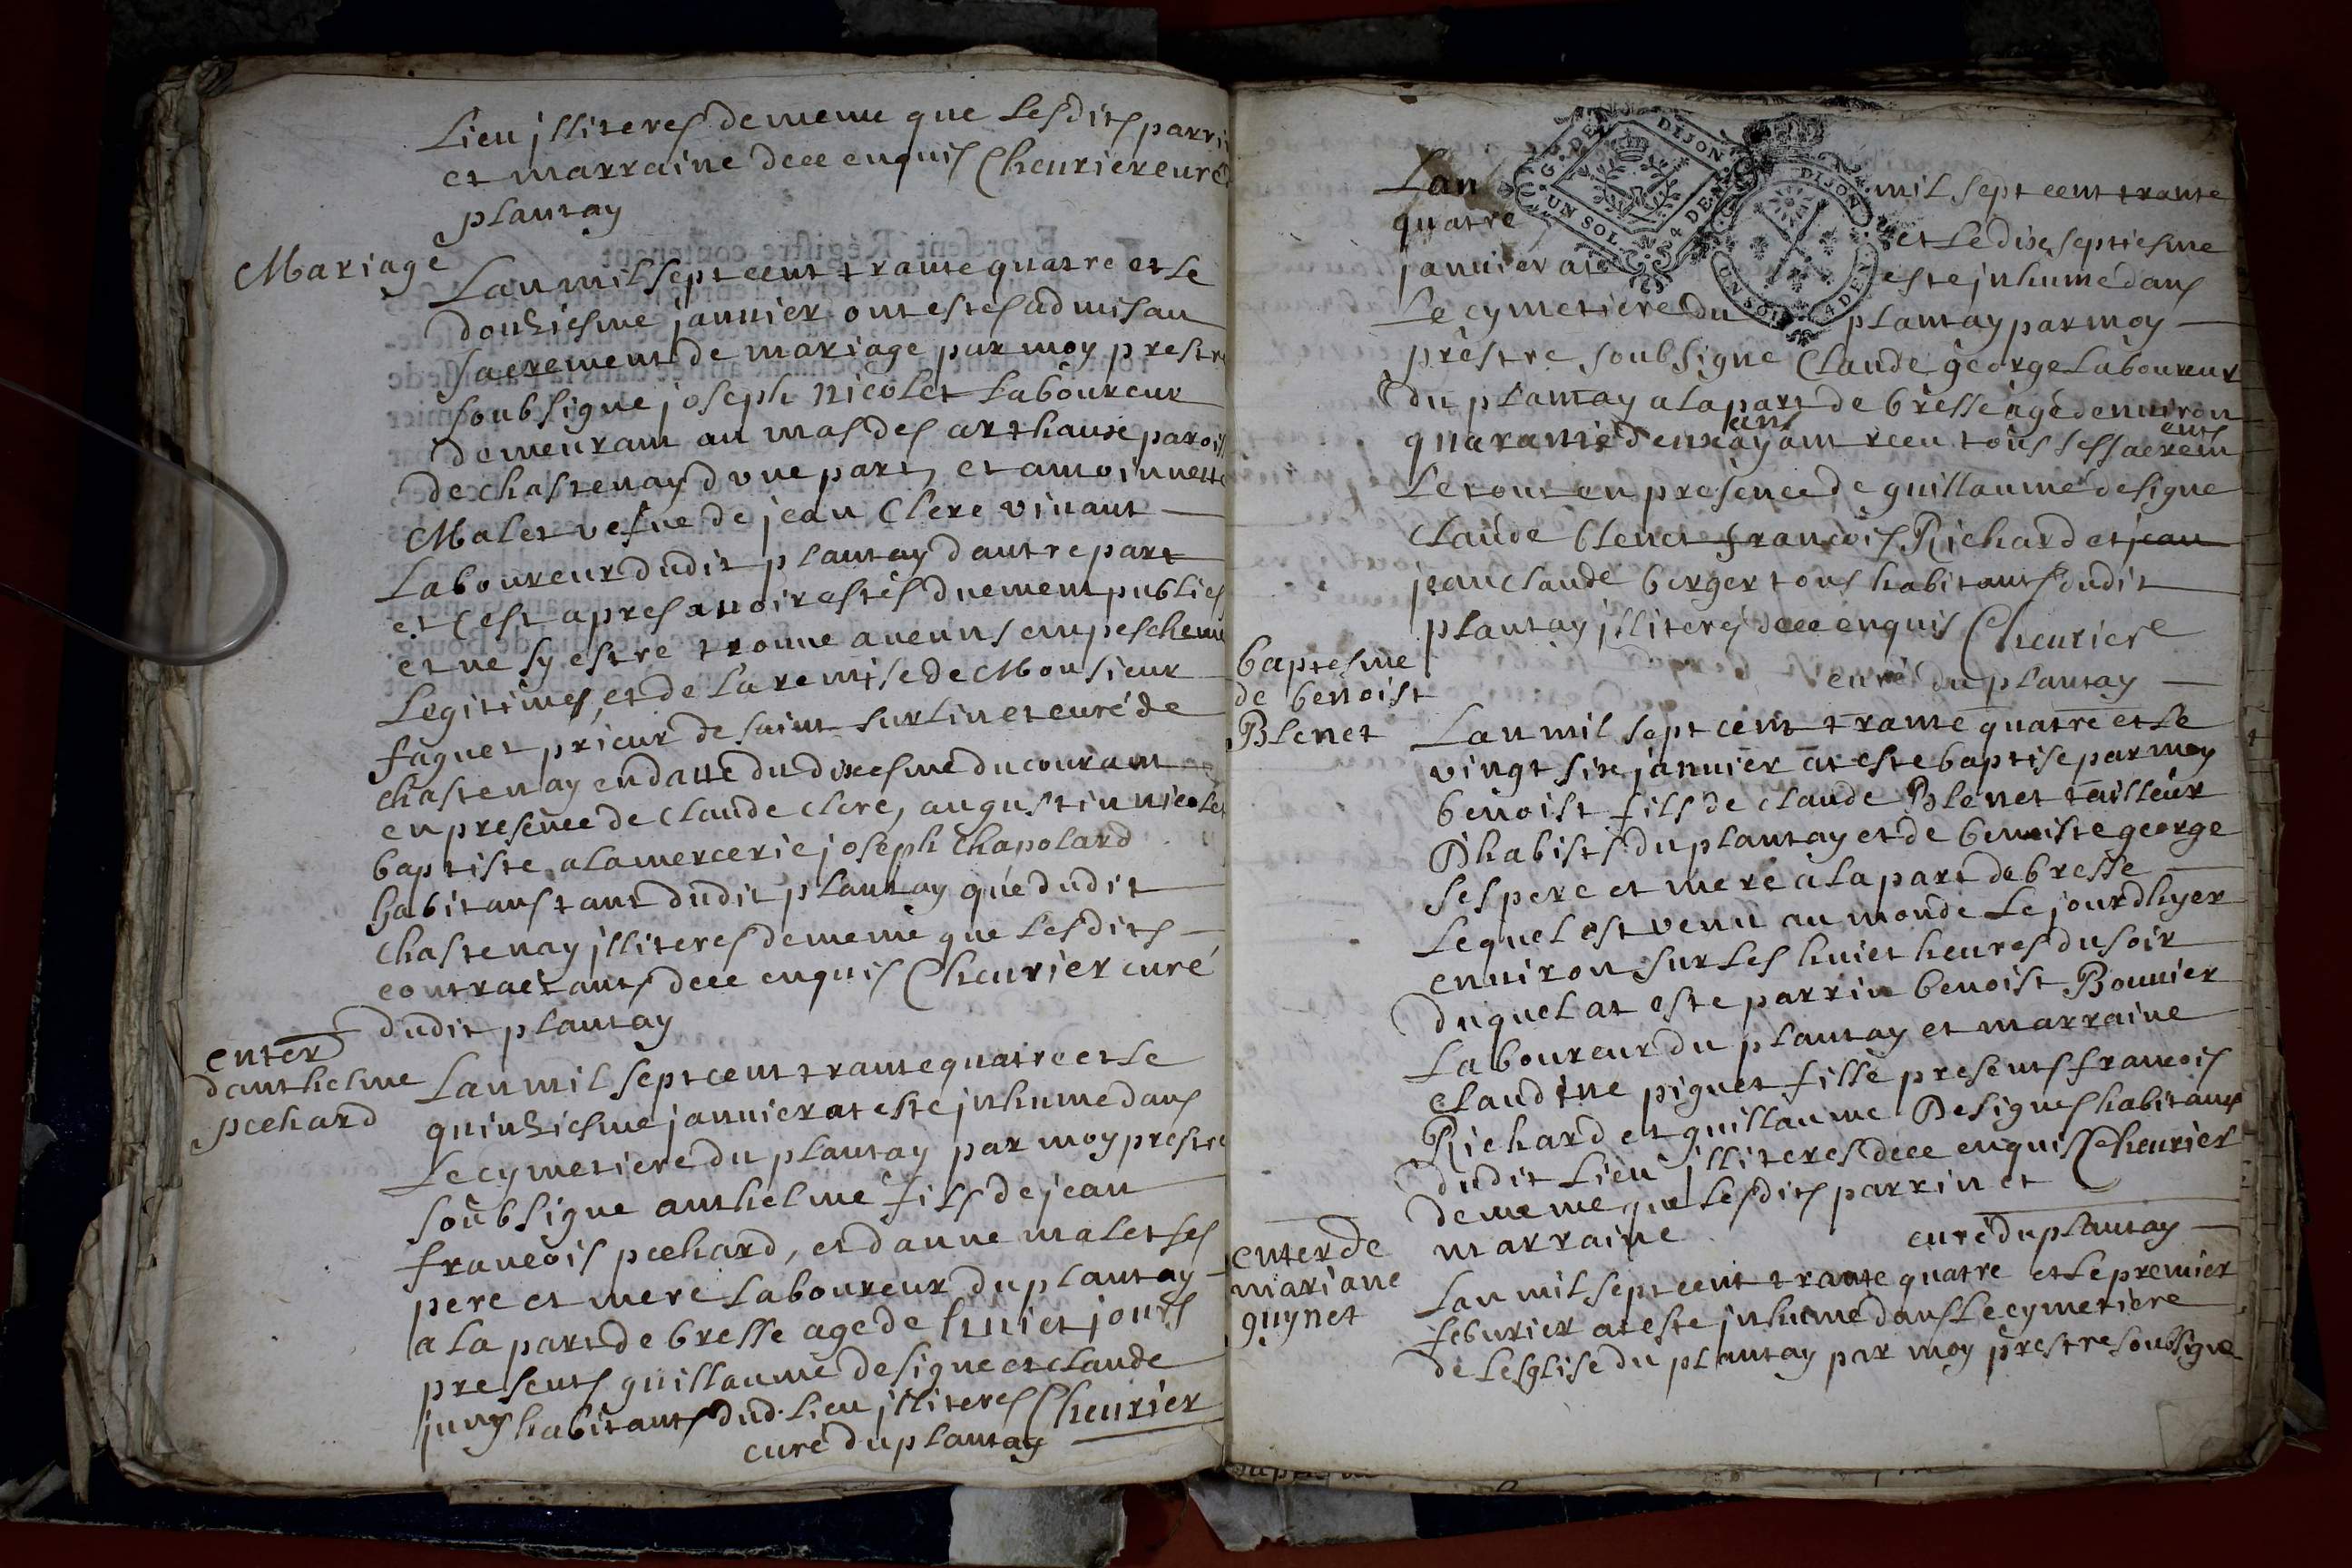 Lieu jlliteres de meme que lesdits parri
et marraine de ce enquis Cheurier curé
plantay
Mariage
Lan mil sept cent trante quatre et le
douziesme januier ont estes admis au
sacrement de mariage par moy prestre
soubsigne joseph nicolet laboureur
demeurant au mas des arthaux parois
de chastenay dune part, et antoinnette
Malet vesue de jean Clerc viuant
Laboureur dudit plantay dautre part
et cest apres auoir estés duement publies
et ne sy estre trouue aucuns empeschem
Legitimes, et de la remise de Monsieur
faguet prieur de saint surlin et curé de
chastenay en datte du dixesme du courant
en presence de Claude clerc, augustin nicolet
baptiste alamercerie joseph Chapolard
habitans tant dudit plantay que dudit
Chastenay jlliteres de meme que lesdits
contractants de ce enquis Cheurier curé
dudit plantay
enter
danthelme
pcehard
Lan mil sept cent trante quatre et le
quinziesme januier at este jnhume dans
Le cymetiere du plantay par moy prestre
soubsigne anthelme fils de jean
francois pcehard, et danne malet ses
pere et mere laboureur du plantay
a la part de bresse age de huict jours
presents guillaume designe et claude
juny habitants dud. lieu jlliteres Cheurier
curé du plantay
G. DE DIJON
UN SOL. N. 24 DEN
DIJON
UN SOL 4 DEN.
Lan mil sept cent trante
quatre et le dixseptiesme
januier at este jnhume dans
Le cymetiere du plantay par moy
prestre soubsigne Claude george laboureur
du plantay a la part de bresse age denuiron
quarante deux ans ayant receu tous ses sacrements
Le tout en presence de guillaume designe
Claude blenet francois Richard et jean
jean claude berger tous habitants dudit
plantay jlliteres de ce enquis Cheurier
curé du plantay
baptesme
de benoist
Blenet
Lan mil sept cent trante quatre et le
vingt six januier at este baptise par moy
benoist fils de claude Blenet tailleur
Dhabists du plantay et de benoiste george
ses pere et mere a la part de bresse
Lequel est venu au monde le jourdhyer
enuiron sur les huict heures du soir
duquel at este parrin benoist Bonnier
Laboureur du plantay et marraine
claudine piguet fille presents francois
Richard et guillaume Designes habitants
dudit lieu jlliteres de ce enquis Cheurier
de meme que lesdits parrin et
marraine curé du plantay
enter de
mariane
guynet
Lan mil sept cent trante quatre et le premier
feburier at este jnhume dans le cymetiere
de lesglise du plantay par moy prestre soubsigne